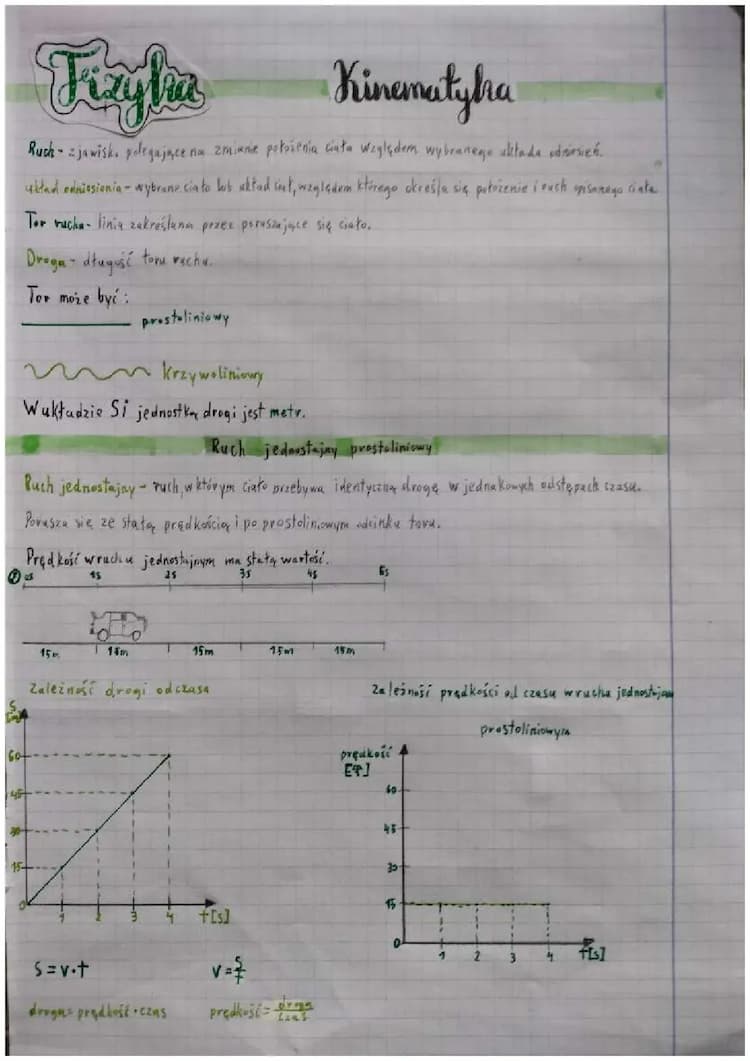 Fizyka
Kinematyka
Ruch - zjawisko polegające na zmianie położenia ciała względem wybranego układu odniesień.
układ odniesienia - wybrane ciało lub układ ciał, względem którego określa się położenie i ruch opisanego ciała
Tor ruchu - linia zakreślana przez poruszające się ciało.
Droga - długość toru ruchu.
Tor może być:
prostoliniowy
krzywoliniowy
W układzie Si jednostką drogi jest metr.
Ruch jednostajny prostoliniowy
Ruch jednostajny - ruch, w którym ciało przebywa identyczną drogę w jednakowych odstępach czasu.
Porusza się ze stałą prędkością i po prostoliniowym odcinku toru.
Prędkość w ruchu jednostajnym ma stałą wartość.
0s 1s 2s 3s 4s 5s
15m 15m 15m 15m 15m
Zależność drogi od czasu
Zależność prędkości od czasu w ruchu jednostajnym
prostoliniowym
S
[m]
60
45
30
15
0
1 2 3 4 t[s]
prędkość
60
45
30
15
0
1 2 3 4 t[s]
S = v·t
v = s/t
droga = prędkość · czas
prędkość = droga/czas